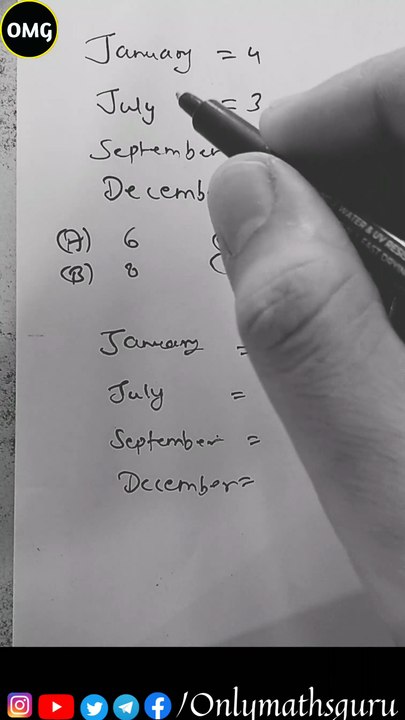 OMG
January = 4
July = 3
September
Decemb
(A) 6
(B) 8
January =
July =
September =
December=
/Onlymathsguru